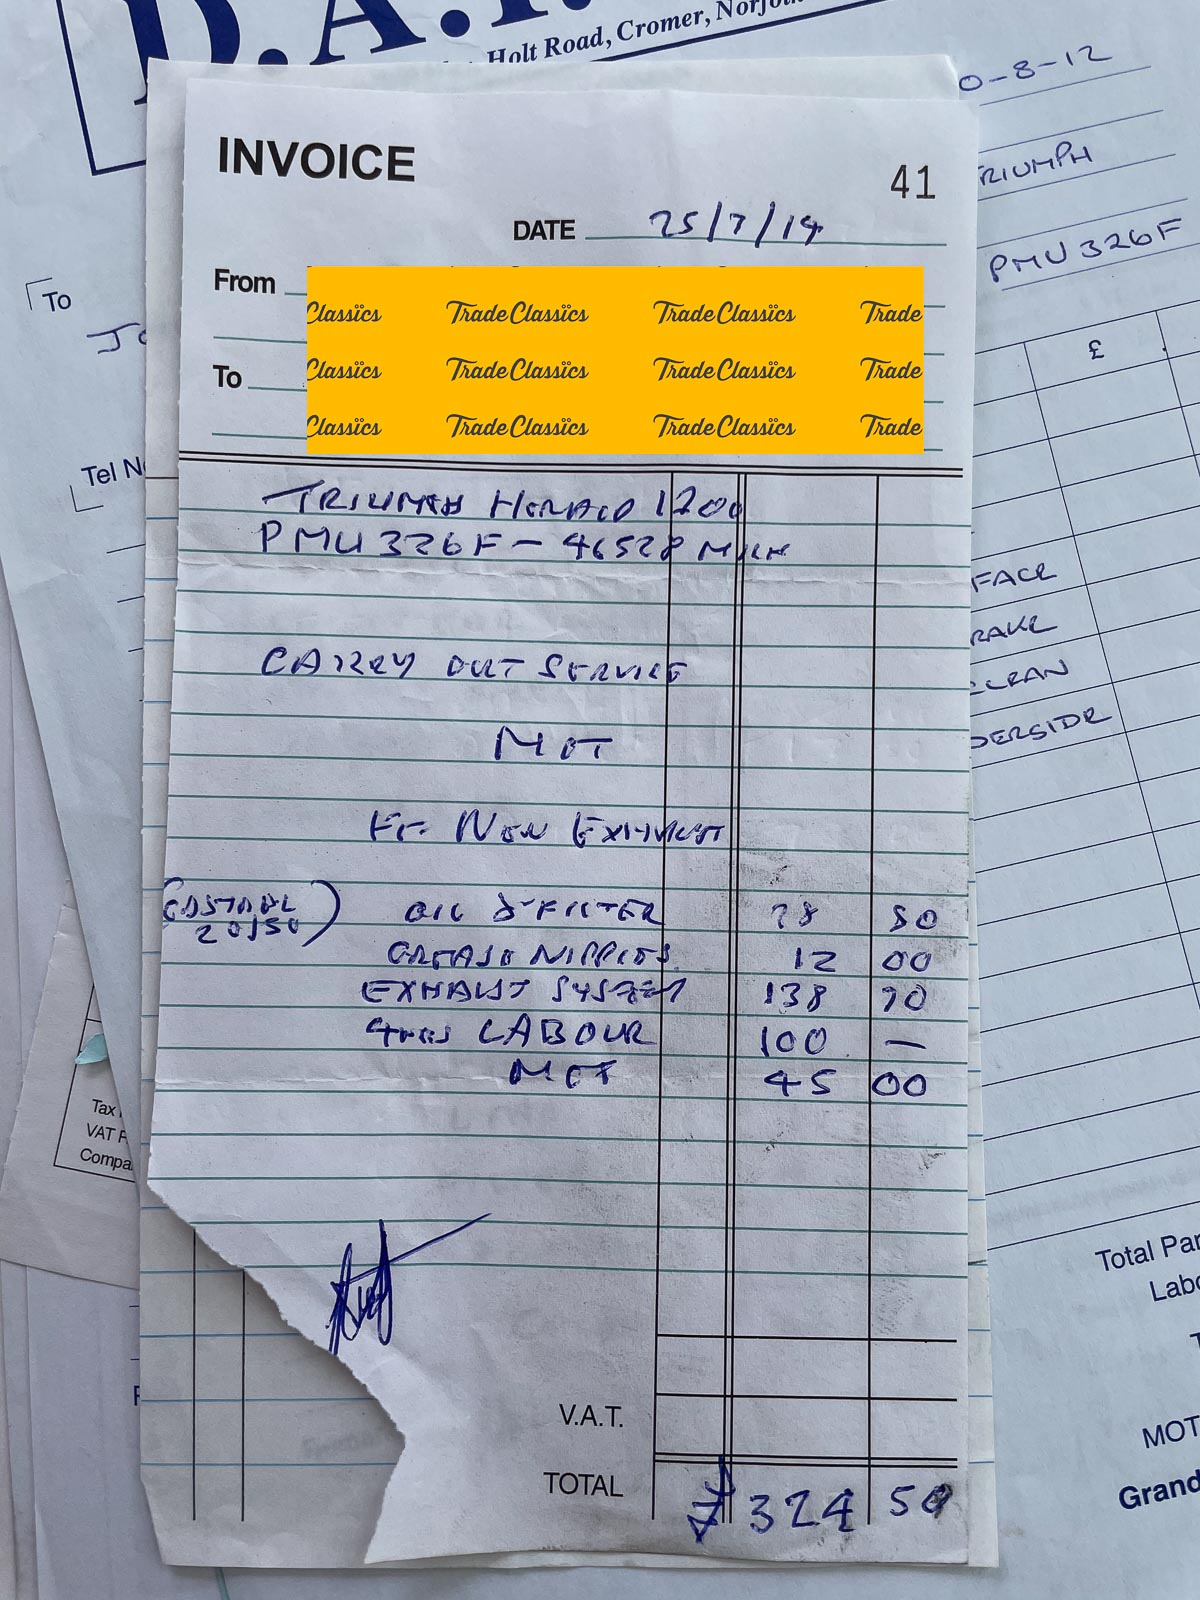 Holt Road, Cromer,
0-8-12
TRIUMPH
PMU 326F
To
Tel No
£
FACE
RAKE
CLEAN
DERSIDE
Tax
VAT
Compa
Total Par
Labo
MOT
Grand
INVOICE
41
DATE 25/7/14
From
Classics TradeClassics TradeClassics Trade
To
Classics TradeClassics TradeClassics Trade
Classics TradeClassics TradeClassics Trade
TRIUMPH HERALD 1200
PMU 326F - 46528 MILES
CARRY OUT SERVICE
MOT
FIT NEW EXHAUST
(CASTROL 20/50) OIL & FILTER 28 80
GREASE NIPPLES 12 00
EXHAUST SYSTEM 138 70
4HRS LABOUR 100 —
MOT 45 00
V.A.T.
TOTAL £ 324 50